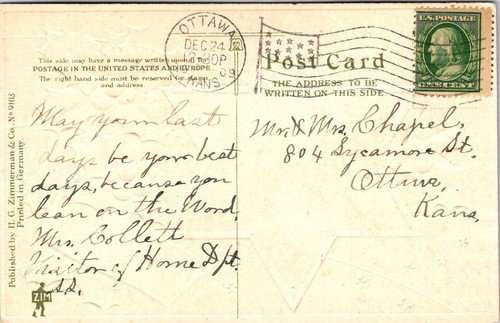 This side may have a message written upon it for
POSTAGE IN THE UNITED STATES AND EUROPE.
The right hand side must be reserved for stamp
and address
OTTAWA
DEC 24
09
KANS.
Post Card
THE ADDRESS TO BE
WRITTEN ON THIS SIDE
U.S. POSTAGE
ONE CENT
May your last
days be your best
days, because you
lean on the Word
Mrs. Collett
Visitor of Home Dpt.
S.S.
Mr & Mrs. Chapel,
804 Sycamore St.
Ottawa,
Kans.
Published by H. G. Zimmerman & Co. No 9103
Printed in Germany.
ZIM